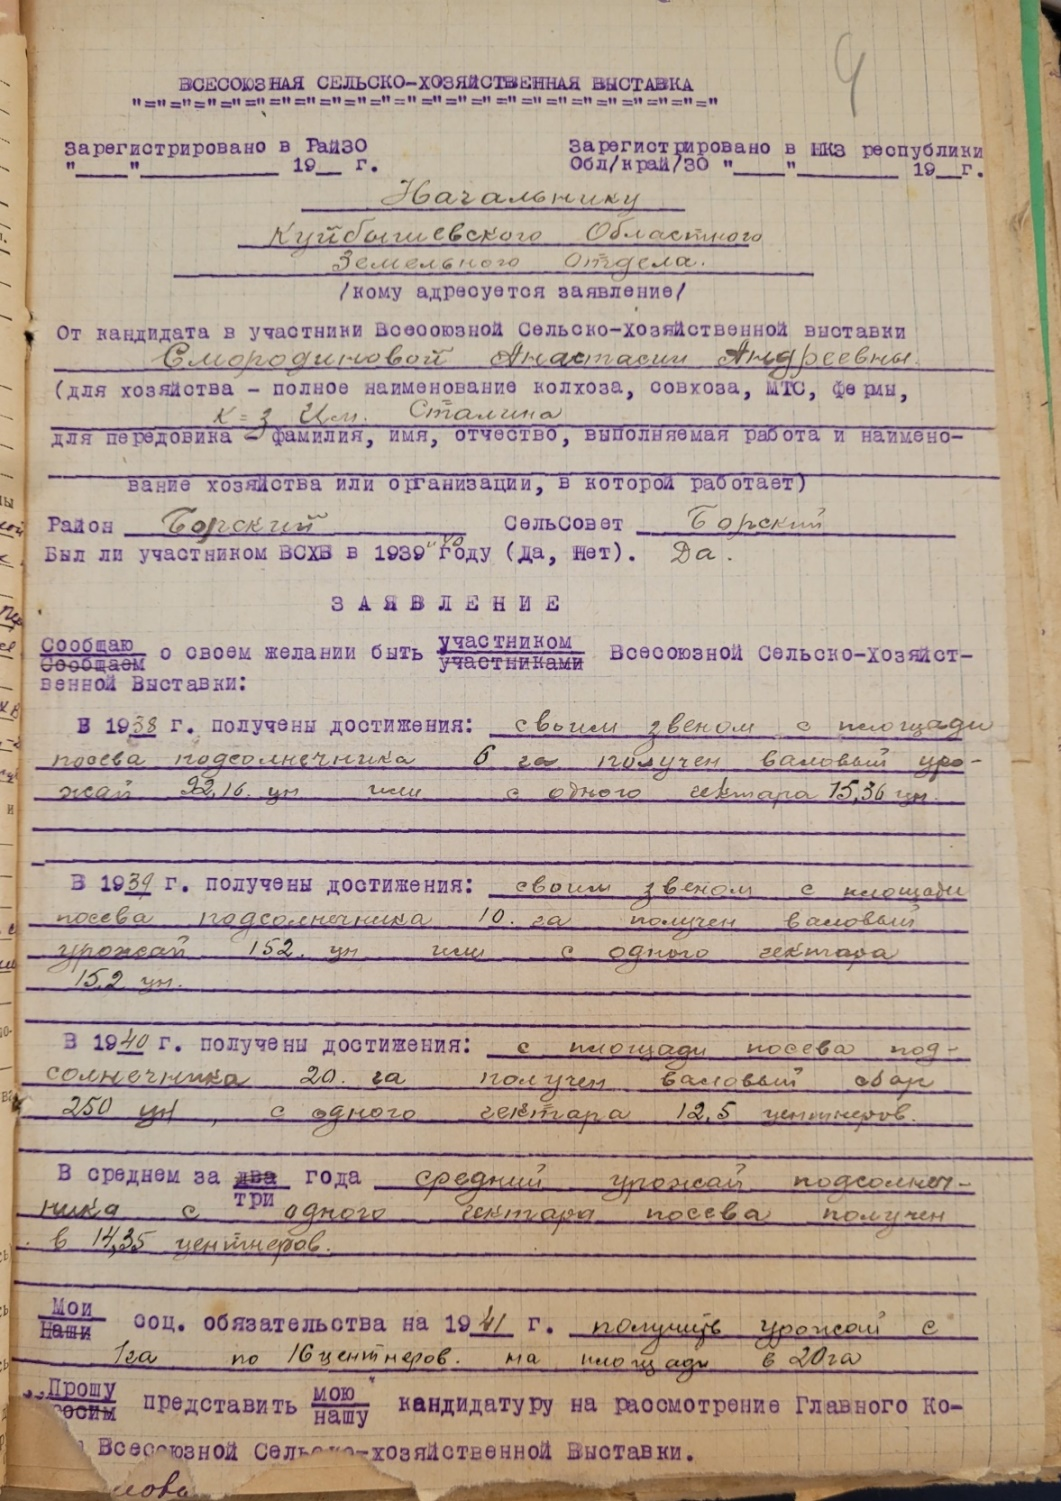 4
ВСЕСОЮЗНАЯ СЕЛЬСКО-ХОЗЯЙСТВЕННАЯ ВЫСТАВКА
"="="="="="="="="="="="="="="="="="="="="="="="="
Зарегистрировано в РайЗО
"____"____________ 19__ г.
Зарегистрировано в НКЗ республики
Обл/край/ЗО "____"_________ 19__г.
Начальнику
Куйбышевского Областного
Земельного Отдела.
/кому адресуется заявление/
От кандидата в участники Всесоюзной Сельско-Хозяйственной выставки
Смородиновой Анастасии Андреевны.
(для хозяйства - полное наименование колхоза, совхоза, МТС, фермы,
к=з Им. Сталина
для передовика - фамилия, имя, отчество, выполняемая работа и наимено-
вание хозяйства или организации, в которой работает)
Район Борский СельСовет Борский
Был ли участником ВСХВ в 1939 "40 году (Да, Нет). Да.
ЗАЯВЛЕНИЕ
Сообщаю
Сообщаем о своем желании быть участником
участниками Всесоюзной Сельско-Хозяйст-
венной Выставки:
В 1938 г. получены достижения: своим звеном с площади
посева подсолнечника 6 га получен валовый уро-
жай 92,16. цн или с одного гектара 15,36 цн.
В 1939 г. получены достижения: своим звеном с площади
посева подсолнечника 10. га получен валовый
урожай 152. цн или с одного гектара
15,2 цн.
В 1940 г. получены достижения: с площади посева под-
солнечника 20. га получен валовый сбор
250 цн, с одного гектара 12,5 центнеров.
В среднем за два года средний урожай подсолнеч-
три
ника с одного гектара посева получен
в 14,35 центнеров.
Мои
Наши соц. обязательства на 1941 г. получить урожай с
1га по 16 центнеров. на площади в 20га
Прошу
осим представить мою
нашу кандидатуру на рассмотрение Главного Ко-
Всесоюзной Сельско-хозяйственной Выставки.